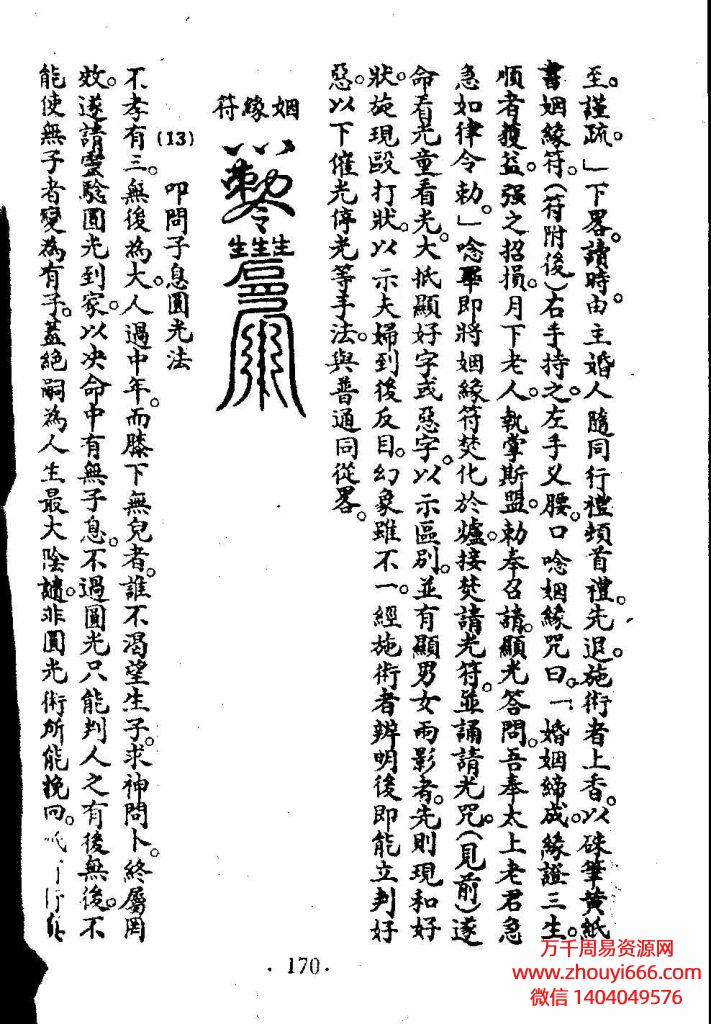 至。謹疏。」下畧。請時。由主婚人隨同行禮。頻首禮。先退。施術者上香。以硃筆黄紙
書姻緣符。(符附後)右手持之。左手叉腰。口唸姻緣咒曰。「婚姻締成。緣證三生。
順者獲益。强之招損。月下老人。執掌斯盟。勅奉召請。顯光答問。吾奉太上老君急
急如律令勅。」唸畢。即將姻緣符焚化於爐。接焚請光符。並誦請光咒。(見前)遂
命看光童看光。大抵顯好字或惡字。以示區別。並有顯男女兩影者。先則現和好
狀。施現毆打狀。以示夫婦到後反目。幻象雖不一。經施術者辨明後。即能立判好
惡。以下催光停光等手法。與普通同從畧。
姻緣符
(13) 叩問子息圓光法
不孝有三。無後為大。人過中年。而膝下無兒者。誰不渴望生子。求神問卜。終屬罔
效。遂請靈驗圓光到家。以決命中有無子息。不過圓光只能判人之有後無後。不
能使無子者變為有子。蓋絕嗣為人生最大陰譴。非圓光術所能挽回。
·170·
万千周易资源网
www.zhouyi666.com
微信 1404049576